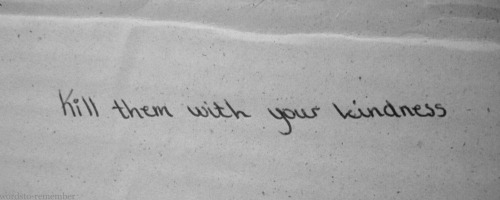 Kill them with your kindness
wordstoremember